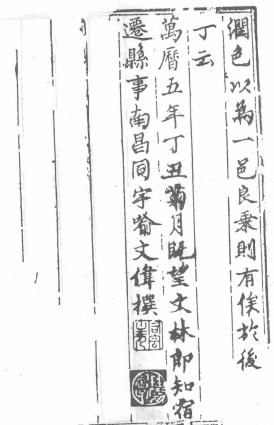 潤色以為一邑良乗則有俟於後
丁云
萬曆五年丁丑菊月既望文林郎知宿
遷縣事南昌同宇喻文偉撰